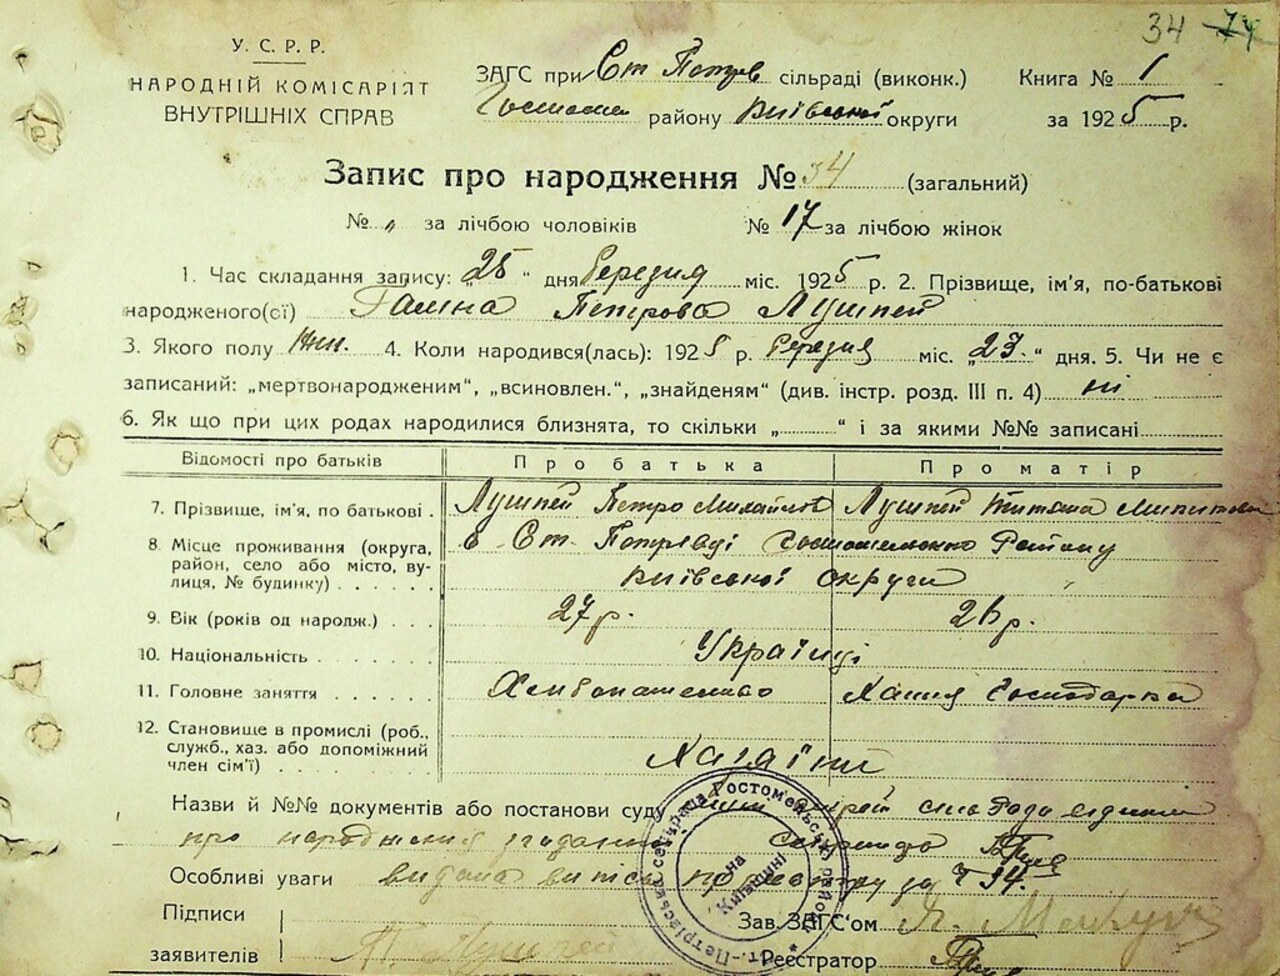 34 74
У.С.Р.Р.
НАРОДНІЙ КОМІСАРІЯТ
ВНУТРІШНІХ СПРАВ
ЗАГС при Ст Петрів сільраді (виконк.) Книга № 1
району Київської округи за 1925 р.
Запис про народження № 34 (загальний)
№ „ за лічбою чоловіків № 17 за лічбою жінок
1. Час складання запису: „25“ дня Березня міс. 1925 р. 2. Прізвище, ім'я, по-батькові
народженого(єї) Галина Петрова Лушпей
3. Якого полу Жін. 4. Коли народився(лась): 1925 р. Березня міс. „23.“ дня. 5. Чи не є
записаний: „мертвонародженим“, „всиновлен.“, „знайденям“ (див. інстр. розд. III п. 4) ні
6. Як що при цих родах народилися близнята, то скільки „ “ і за якими №№ записані
Відомості про батьків Про батька Про матір
7. Прізвище, ім'я, по батькові . Лушпей Петро Михайлов Лушпей
8. Місце проживання (округа, район, село або місто, вулиця, № будинку) в Ст Петрівці Гостомельського Району
Київської округи
9. Вік (років од народж.) 27 р. 26 р.
10. Національність Українці
11. Головне заняття Хлібопашество Хатня Господарка
12. Становище в промислі (роб., служб., хаз. або допоміжний член сім'ї) Хазяїни
Назви й №№ документів або постанови суду
про народження
Особливі уваги видана витіс по реєстру за Ч 34.
Підписи
заявителів П. Лушпей
Зав. ЗАГС'ом
Реєстратор
Ст.-Петрівська сельрада Гостомельськ. району
на Київщині